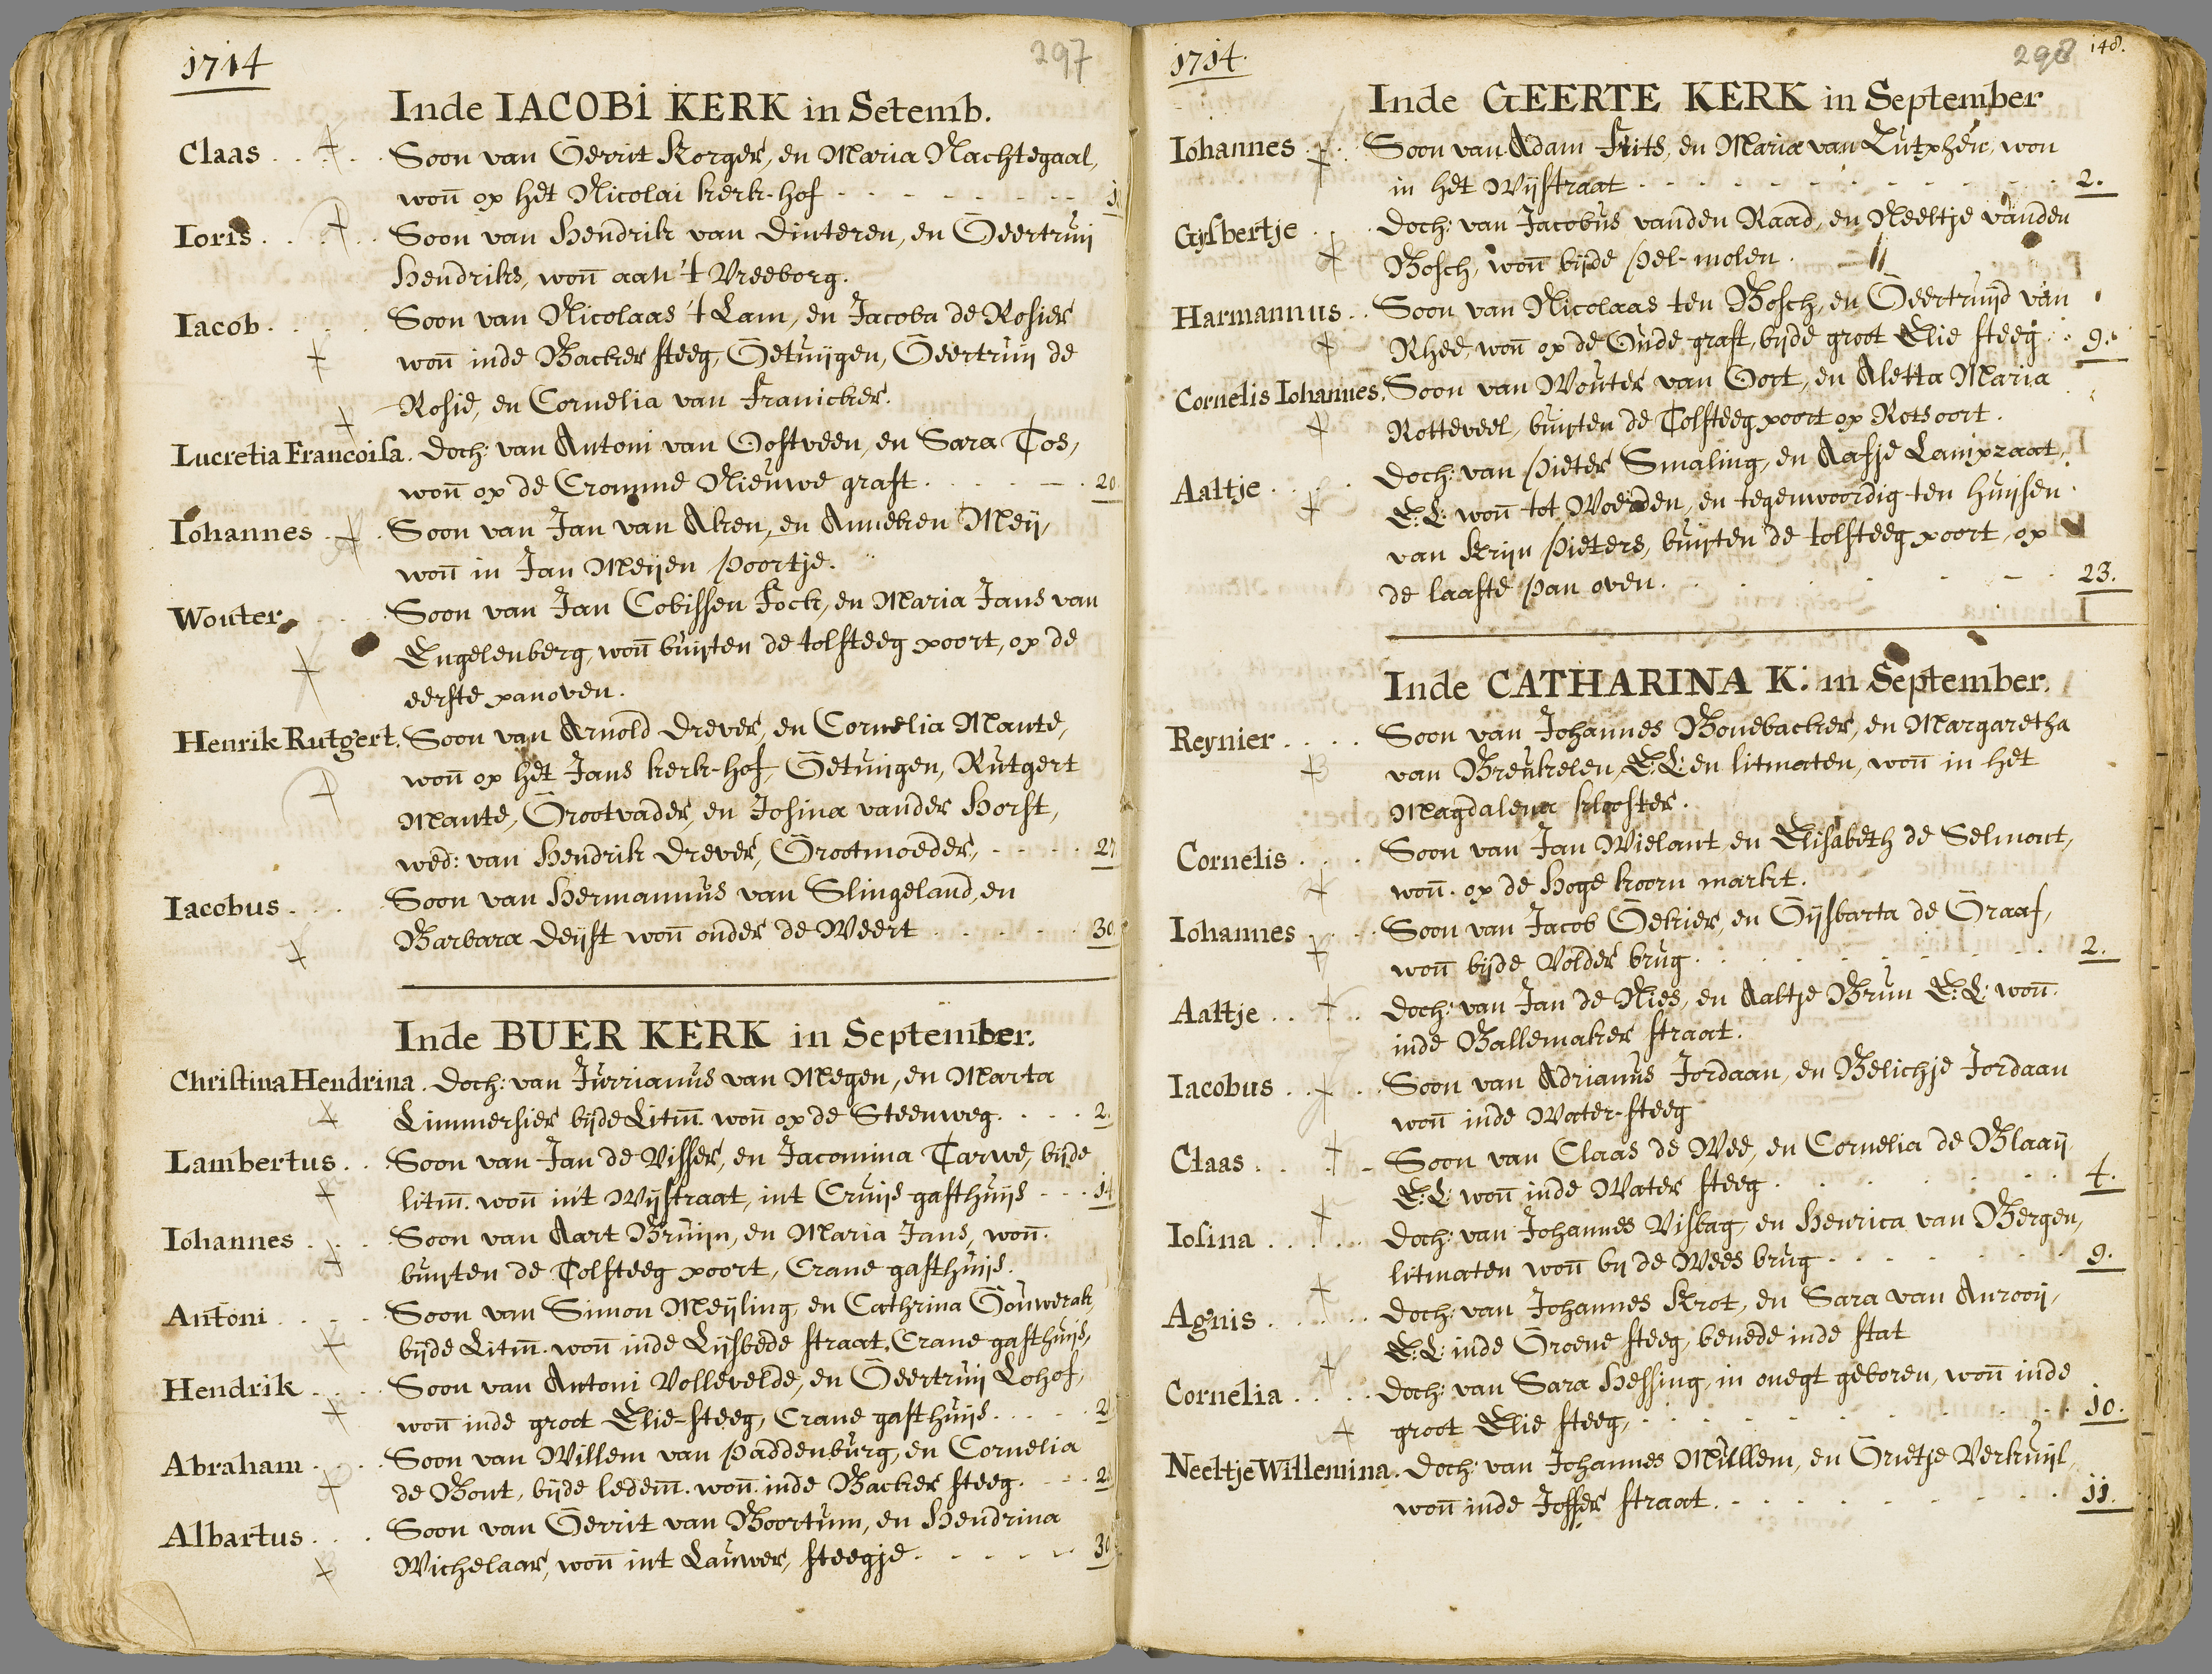 1714
297
Inde IACOBI KERK in Setemb.
Claas . . . . Soon van Gerrit Korger, en Maria Nachtegaal,
won̄ op het Nicolai kerk-hof
Ioris . . . . Soon van Hendrik van Dinteren, en Geertruij
Hendriks, won̄ aan 't Vreeborg.
Iacob . . . . Soon van Nicolaas 't Lam, en Jacoba de Rosier
won̄ inde Backer steeg, Getuijgen, Geertruij de
Rosie, en Cornelia van Franicker.
Lucretia Francoisa. Doch: van Antoni van Oostveen, en Sara Tos,
won̄ op de Cromme Nieuwe graft . . . . 20
Iohannes . . Soon van Jan van Aken, en Anneken Meij,
won̄ in Jan Meijen poortje.
Wouter . . . Soon van Jan Cobissen Fock, en Maria Jans van
Engelenberg, won̄ buijten de tolsteeg poort, op de
eerste panoven.
Henrik Rutgert. Soon van Arnold Drever, en Cornelia Mante,
won̄ op het Jans kerk-hof, Getuijgen, Rutgert
Mante, Grootvader, en Josina vander Horst,
wed: van Hendrik Drever, Grootmoeder, . . . . 27
Iacobus . . . Soon van Hermannus van Slingeland, en
Barbara Deijst won̄ onder de Weert . . . . 30
Inde BUER KERK in September.
Christina Hendrina . Doch: van Jurrianus van Megen, en Marta
Limmersier bijde Litm̄. won̄ op de Steenweg. . . . 2.
Lambertus . . Soon van Jan de Visser, en Jacomina Tarwe, bijde
litm̄. won̄ in't Wijstraat, int Cruijs gasthuijs . . . 14
Iohannes . . . Soon van Aart Bruijn, en Maria Jans, won̄.
buijten de Tolsteeg poort, Crane gasthuijs.
Antoni . . . . Soon van Simon Meijling, en Cathrina Gouwerak,
bijde Litm̄. won̄ inde Lijsbede straat, Crane gasthuijs,
Hendrik . . . Soon van Antoni Vollevelde, en Geertruij Lohof,
won̄ inde groot Elie-steeg, Crane gasthuijs . . . .
Abraham . . . Soon van Willem van Paddenburg, en Cornelia
de Bont, bijde ledem̄. won̄. inde Backer steeg. . . .
Albartus . . . Soon van Gerrit van Boortum, en Hendrina
Wichelaar, won̄ int Lauwer, steegje . . . . 30
1714.
298 148.
Inde GEERTE KERK in September
Iohannes . . Soon van Adam Frits, en Maria van Zutphen, won
in het Wijstraat . . . . 2.
Gijsbertje . . Doch: van Jacobus vanden Raad, en Neeltje vanden
Bosch, won̄ bijde pel-molen.
Harmannus . . Soon van Nicolaas ten Bosch, en Geertruijd van
Rhee, won̄ op de Oude graft, bijde groot Elie steeg . . 9.
Cornelis Iohannes. Soon van Wouter van Oort, en Aletta Maria
Rotteveel, buijten de Tolsteegpoort op Rotsoort.
Aaltje . . . . Doch: van Pieter Smaling, en Aafje Lampzaat,
E:L: won̄ tot Woerden, en tegenwoordig ten huijsen
van Krijn Pieters, buijten de tolsteeg poort, op
de laaste pan oven. . . . 23.
Inde CATHARINA K: in September.
Reynier . . . . Soon van Johannes Bonebacker, en Margaretha
van Breukelen, E:L: en litmaten, won̄ in het
Magdalena klooster.
Cornelis . . . Soon van Jan Wielant, en Elisabeth de Selmont,
won̄. op de Hoge koorn markt.
Iohannes . . . Soon van Jacob Gekier, en Gijsbarta de Graaf,
won̄ bijde Volder brug . . . . 2.
Aaltje . . . . Doch: van Jan de Nies, en Aaltje Brun E:L: won̄.
inde Ballemaker straat.
Iacobus . . . Soon van Adrianus Jordaan, en Belichje Jordaan
won̄ inde Water-steeg
Claas . . . . Soon van Claas de Wee, en Cornelia de Blaaij
E:L: won̄ inde Water steeg . . . . 4.
Iosina . . . . Doch: van Johannes Visbag, en Henrica van Bergen,
litmaten won̄ by de Wees brug . . . . 9.
Agnis . . . . Doch: van Johannes Krot, en Sara van Anrooij,
E:L: inde Groene steeg, benede inde stat
Cornelia . . . Doch: van Sara Hessing, in onegt geboren, won̄ inde
groot Elie steeg, . . . . 10.
Neeltje Willemina. Doch: van Johannes Mulllem, en Grietje Verkuijl,
won̄ inde Joffer straat. . . . 11.